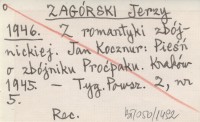 ZAGÓRSKI Jerzy
1946. Z romantyki zbój-
nickiej. Jan Kocznur: Pieśń
o zbójniku Proćpaku. Kraków
1945. — Tyg. Powsz. 2, nr
5.
Rec.